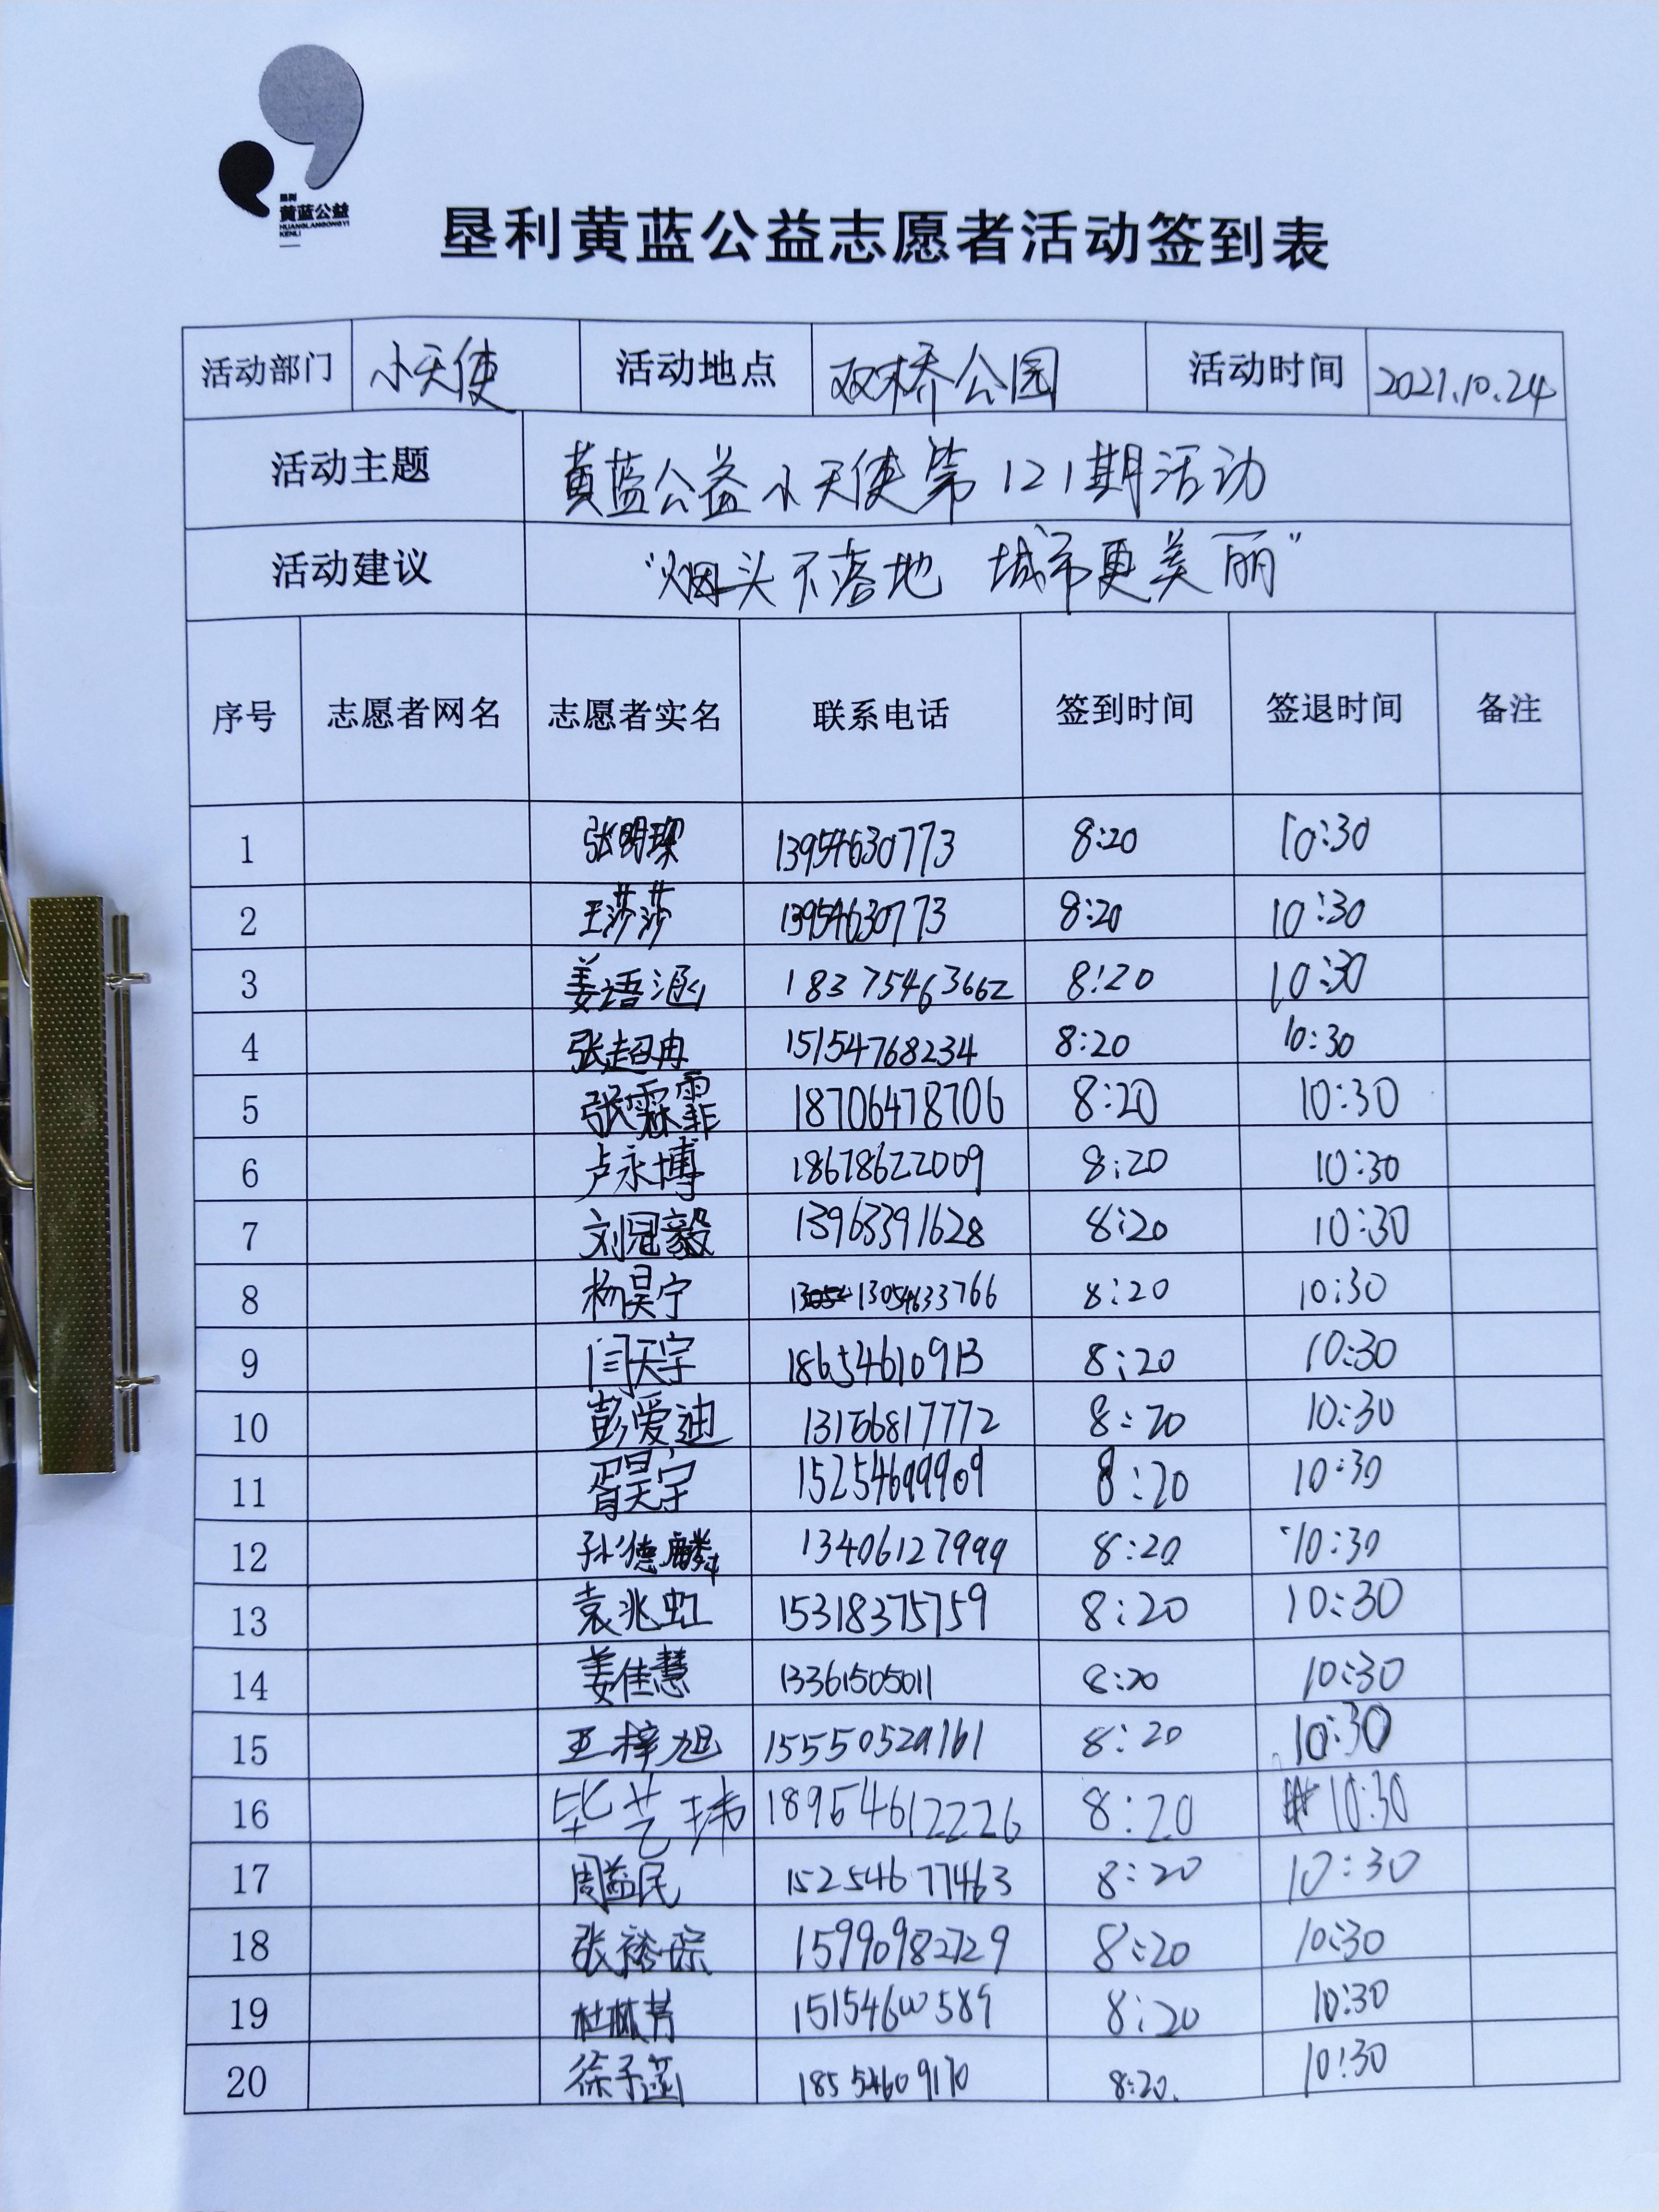 垦利
黄蓝公益
HUANGLANGONGYI
KENLI
垦利黄蓝公益志愿者活动签到表
活动部门 小天使 活动地点 双桥公园 活动时间 2021.10.24
活动主题 黄蓝公益小天使第121期活动
活动建议 “烟头不落地 城市更美丽”
序号 志愿者网名 志愿者实名 联系电话 签到时间 签退时间 备注
1 张明琛 13954630773 8:20 10:30
2 王莎莎 13954630773 8:20 10:30
3 姜语涵 18375463662 8:20 10:30
4 张超冉 15154768234 8:20 10:30
5 张霖霏 18706478706 8:20 10:30
6 卢永博 18678622009 8:20 10:30
7 刘冠毅 13963391628 8:20 10:30
8 杨昊宁 13054633766 8:20 10:30
9 闫天宇 18654610913 8:20 10:30
10 彭爱迪 13156817772 8:20 10:30
11 胥昊宇 15254699909 8:20 10:30
12 孙德麟 13406127999 8:20 10:30
13 袁兆虹 15318375759 8:20 10:30
14 姜佳慧 13361505011 8:20 10:30
15 王梓旭 15550529161 8:20 10:30
16 毕艺玮 18954612226 8:20 10:30
17 周益民 15254677463 8:20 10:30
18 张裕琮 15990982729 8:20 10:30
19 杜林芳 15154600589 8:20 10:30
20 徐子涵 18554609170 8:20 10:30